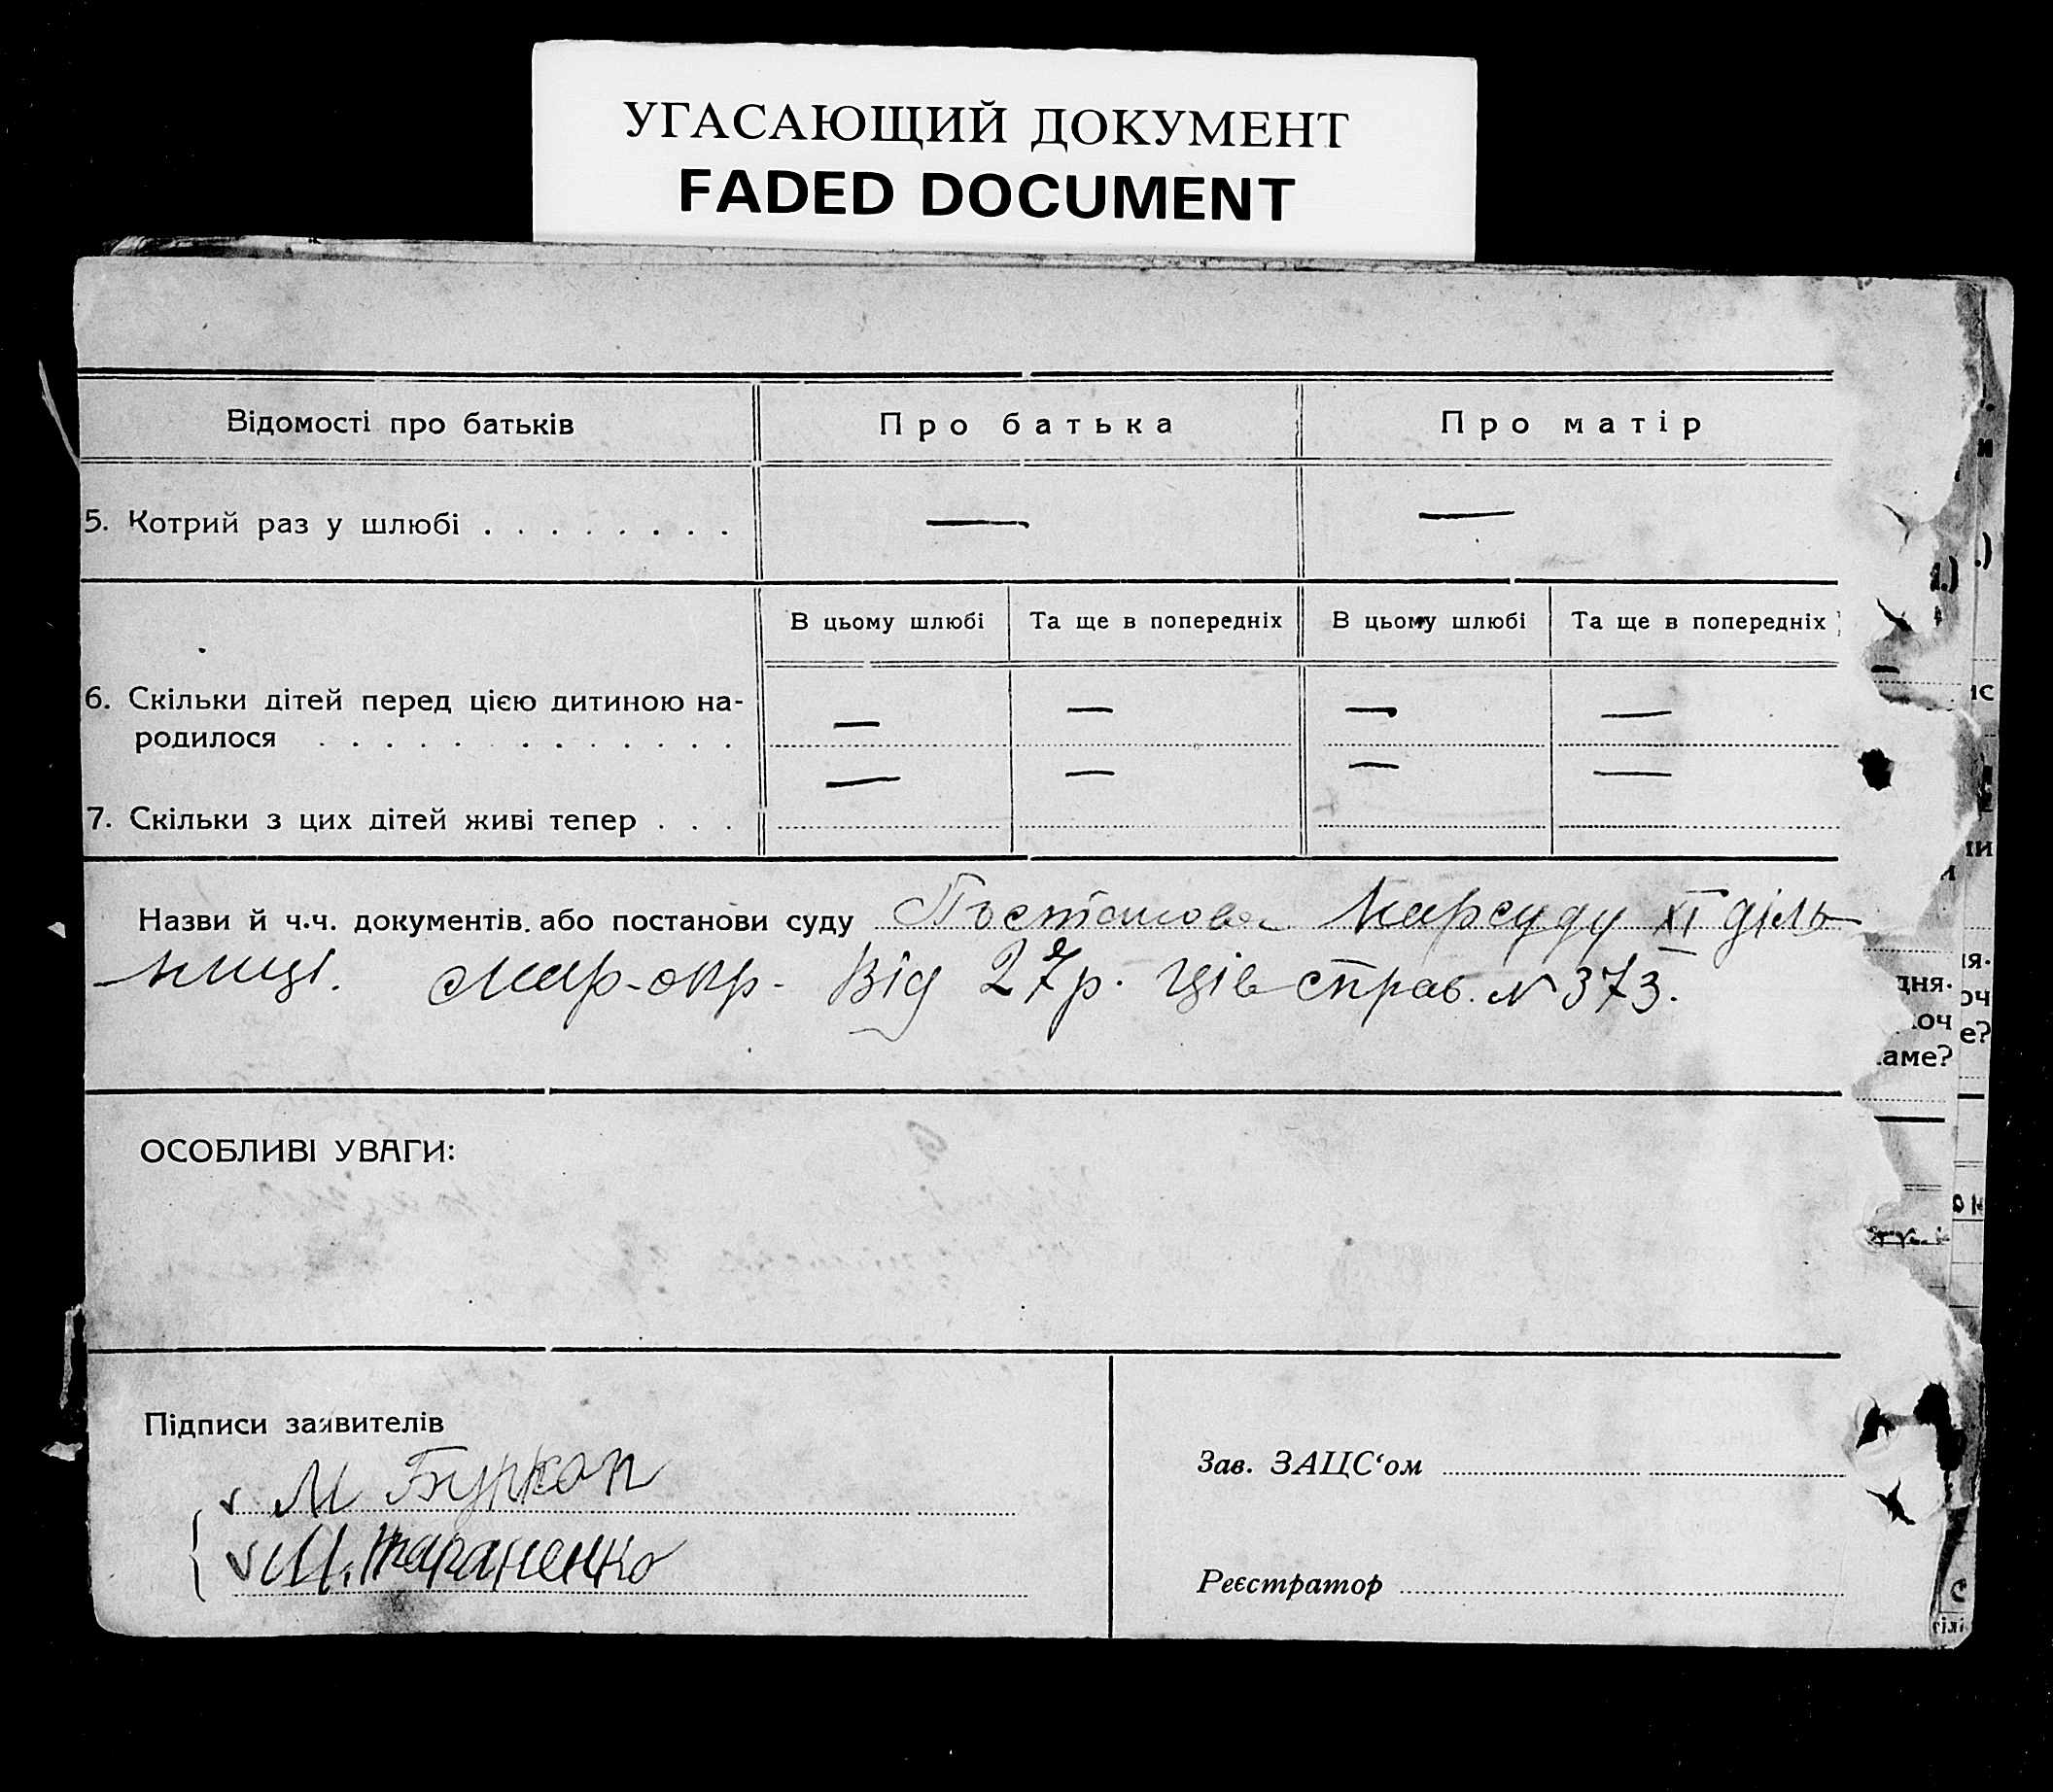 УГАСАЮЩИЙ ДОКУМЕНТ
FADED DOCUMENT
Відомості про батьків Про батька Про матір
5. Котрий раз у шлюбі . . . . . . . . — —
В цьому шлюбі Та ще в попередніх В цьому шлюбі Та ще в попередніх
6. Скільки дітей перед цією дитиною на-
родилося . . . . . . . . . . . . . — — — —
7. Скільки з цих дітей живі тепер . . . — — — —
Назви й ч.ч. документів або постанови суду Постанова Нарсуду XI діль
ниці. Мар-окр. Від 27р. Ців справ. № 373.
ОСОБЛИВІ УВАГИ:
Підписи заявителів
М
М. Тараненко
Зав. ЗАЦС‘ом
Реєстратор
дня.
оч
аме?
е?